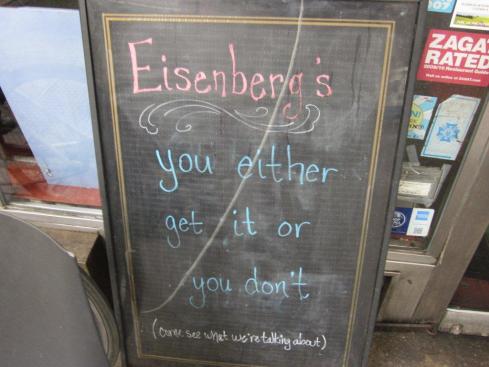 Eisenberg's
you either
get it or
you don't
(come see what we're talking about)
ZAGAT
RATED